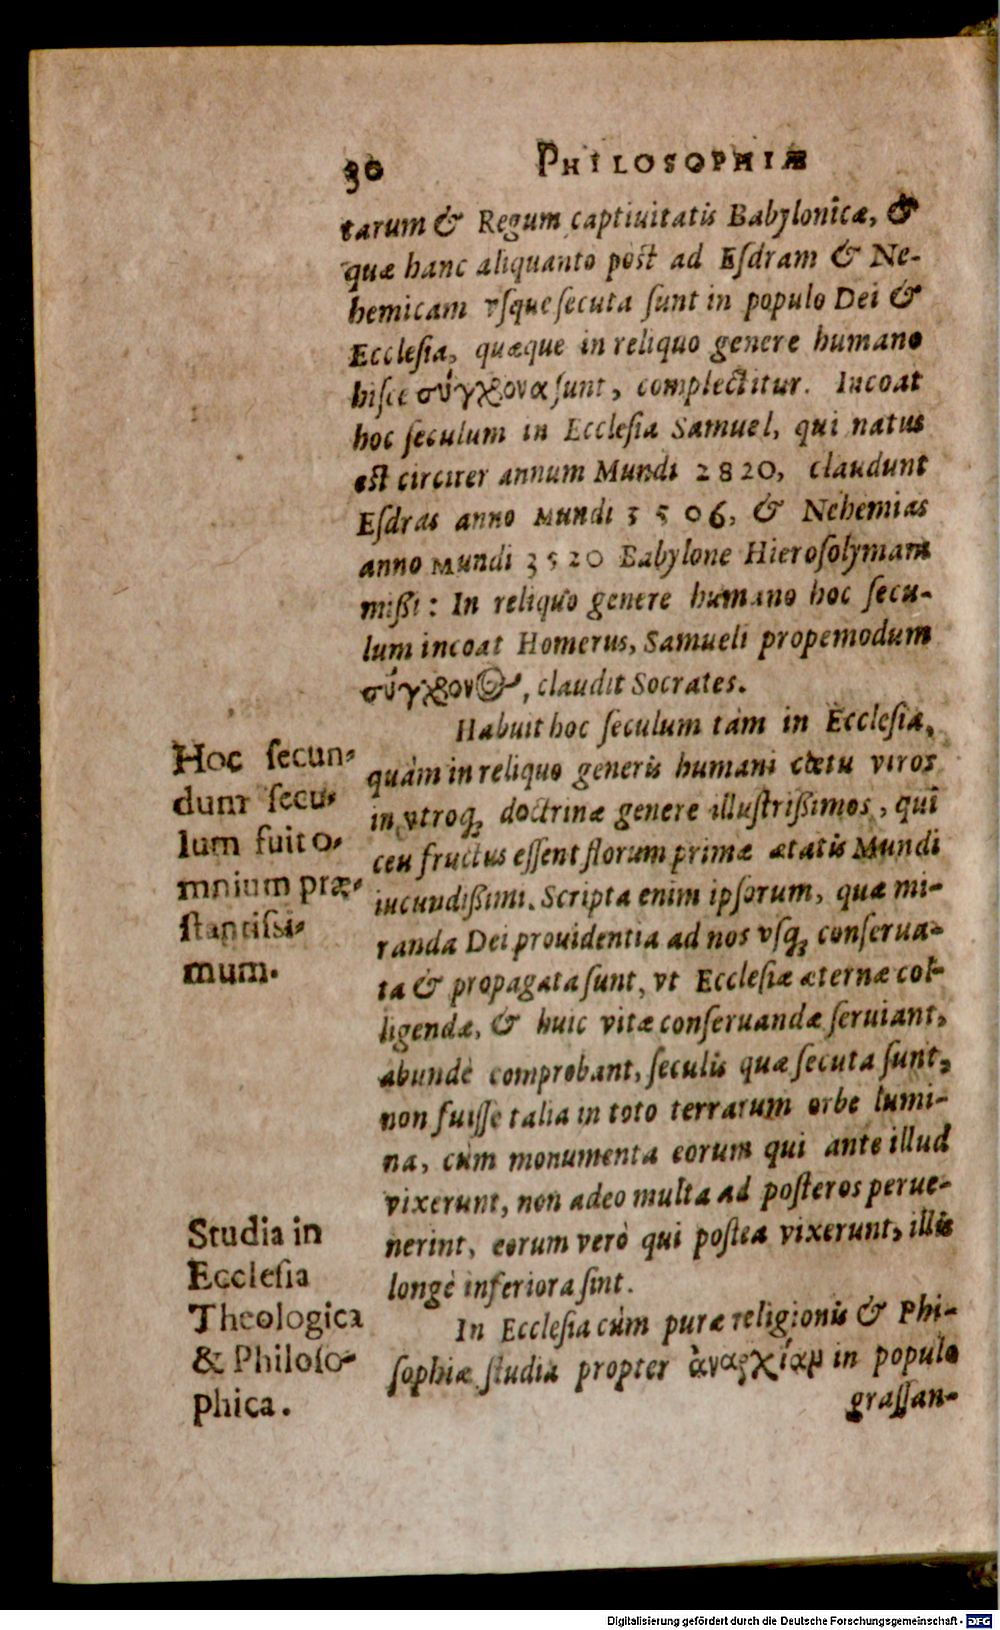 30 PHILOSOPHIÆ
tarum & Regum captiuitatis Babylonicæ, &
quæ hanc aliquanto post ad Eſdram & Ne-
hemicam vſque ſecuta ſunt in populo Dei &
Eccleſia, quæque in reliquo genere humano
hiſce σύγχρονα ſunt, complectitur. Incoat
hoc ſeculum in Eccleſia Samuel, qui natus
est circiter annum Mundi 2820, claudunt
Eſdras anno Mundi 3506, & Nehemias
anno Mundi 3520 Babylone Hieroſolymam
mißi: In reliquo genere humano hoc ſecu-
lum incoat Homerus, Samueli propemodum
σύγχρονος, claudit Socrates.
Habuit hoc ſeculum tam in Eccleſia,
Hoc ſecun-
dum ſecu-
lum fuit o-
mnium præ-
ſtantiſsi-
mum.
quàm in reliquo generis humani cœtu viros
in vtroq; doctrinæ genere illuſtrißimos, qui
ceu fructus eſſent florum primæ ætatis Mundi
iucundißimi. Scripta enim ipſorum, quæ mi-
randa Dei prouidentia ad nos vſq; conſerua-
ta & propagata ſunt, vt Eccleſiæ æternæ col-
ligendæ, & huic vitæ conſeruandæ ſeruiant,
abundè comprobant, ſeculis quæ ſecuta ſunt,
non fuiſſe talia in toto terrarum orbe lumi-
na, cùm monumenta eorum qui ante illud
vixerunt, non adeo multa ad poſteros perue-
nerint, eorum verò qui poſtea vixerunt, illis
longè inferiora ſint.
Studia in
Eccleſia
Theologica
& Philoſo-
phica.
In Eccleſia cùm puræ religionis & Phi-
ſophiæ ſtudia propter ἀναρχίαμ in populo
graſſan-
Digitalisierung gefördert durch die Deutsche Forschungsgemeinschaft - DFG